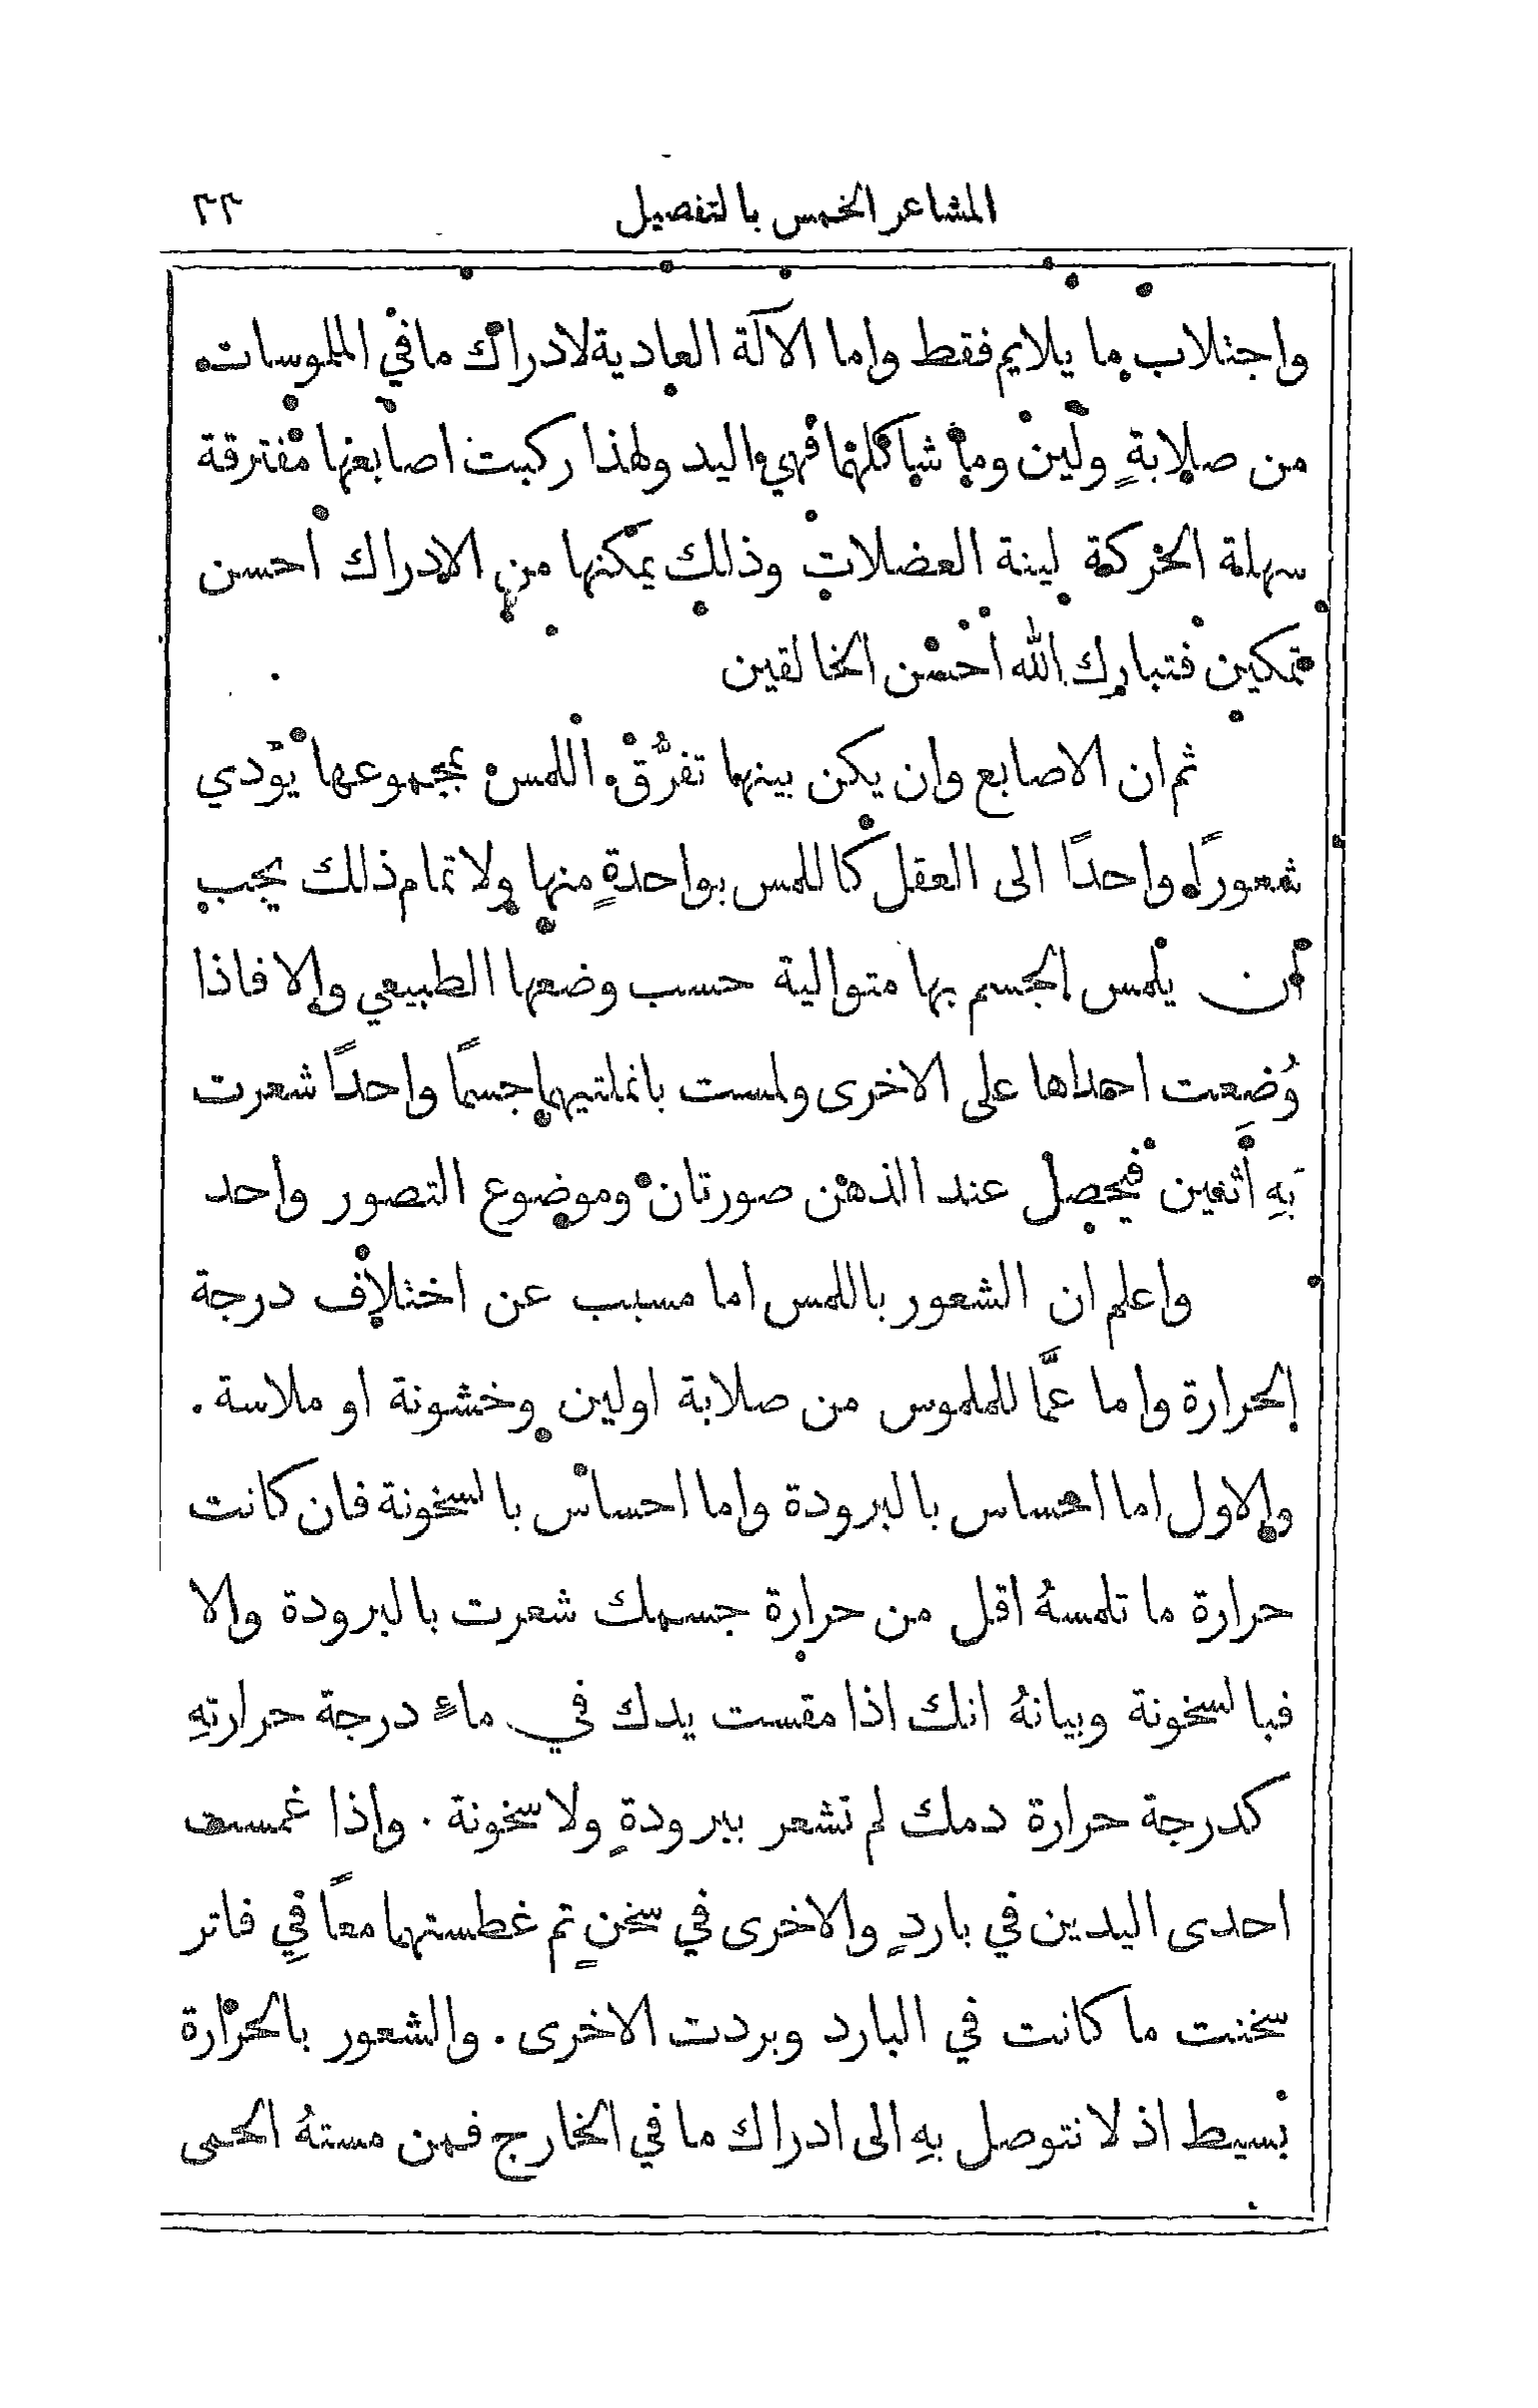 المشاعر الخمس بالتفصيل ٢٣
واجتلاب ما يلايم فقط واما الآلة العادية لادراك ما في الملموسات
من صلابةٍ ولين وما شاكلها فهي اليد ولهذا ركبت اصابعها مفترقة
سهلة الحركة لينة العضلات وذلك يمكنها من الادراك احسن
تمكين فتبارك الله احسن الخالقين
ثم ان الاصابع وان يكن بينها تفرُّق اللمس بمجموعها يؤدي
شعورًا واحدًا الى العقل كاللمس بواحدةٍ منها ولاتمام ذلك يجب
أن يلمس الجسم بها متوالية حسب وضعها الطبيعي والا فاذا
وُضعت احداها على الاخرى ولمست بانملتيهما جسمًا واحدًا شعرت
بهِ اثنين فيحصل عند الذهن صورتان وموضوع التصور واحد
واعلم ان الشعور باللمس اما مسبب عن اختلاف درجة
الحرارة واما عمَّا للملموس من صلابة اولين وخشونة او ملاسة .
والاول اما احساس بالبرودة واما احساس بالسخونة فان كانت
حرارة ما تلمسهُ اقل من حرارة جسمك شعرت بالبرودة والا
فبالسخونة وبيانهُ انك اذا مقست يدك في ماءٍ درجة حرارتهِ
كدرجة حرارة دمك لم تشعر ببرودةٍ ولا سخونة . واذا غمست
احدى اليدين في باردٍ والاخرى في سخنٍ ثم غطستهما معًا في فاتر
سخنت ما كانت في البارد وبردت الاخرى . والشعور بالحرارة
بسيط اذ لا نتوصل بهِ الى ادراك ما في الخارج فمن مستهُ الحمى